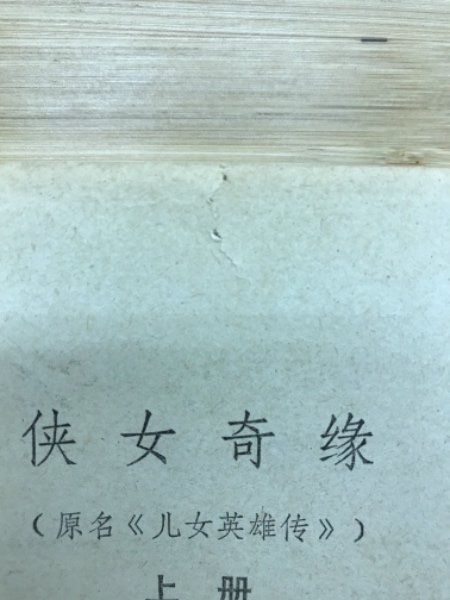 侠女奇缘
（原名《儿女英雄传》）
上册